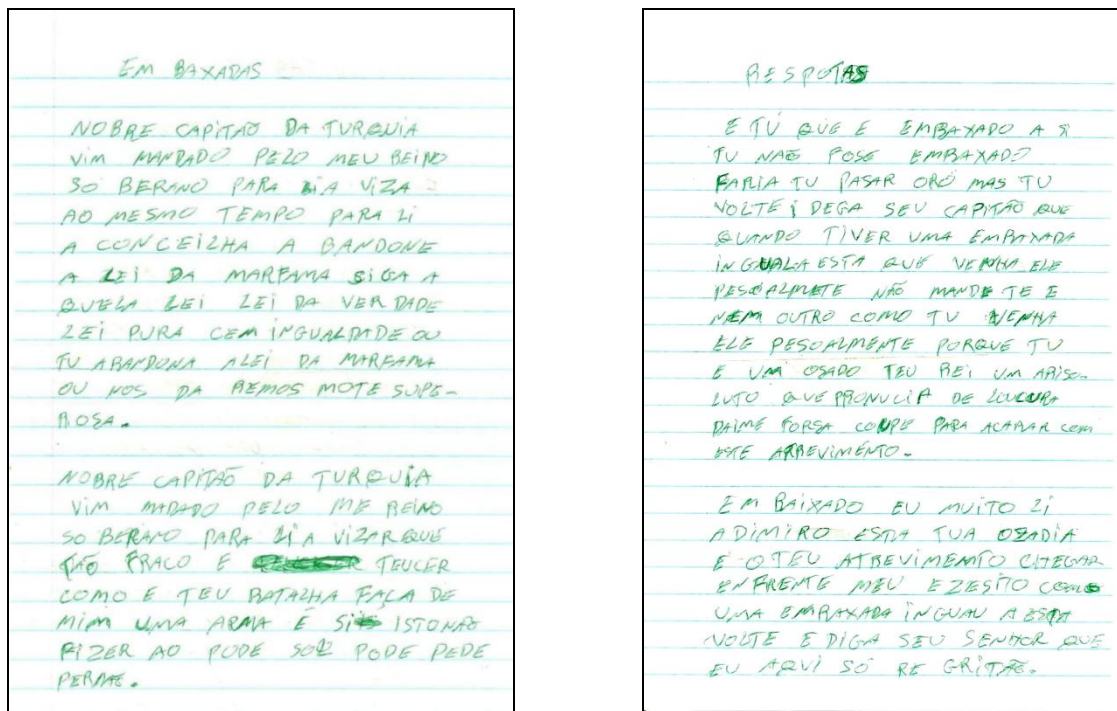 EM BAXADAS
NOBRE CAPITÃO DA TURQUIA
VIM MANDADO PELO MEU REINO
SO BERANO PARA LI A VIZA
AO MESMO TEMPO PARA LI
A CONCEILHA A BANDONE
A LEI DA MARFAMA SIGA A
QUELA LEI LEI DA VER DADE
LEI PURA CEM INGUALDADE OU
TU ABANDONA A LEI DA MARFAMA
OU NOS DA REMOS MOTE SUPE-
ROSA.
NOBRE CAPITÃO DA TURQUIA
VIM MADADO PELO ME REINO
SO BERANO PARA LI A VIZAR QUE
TÃO FRACO E TEUCER
COMO E TEU BATALHA FAÇA DE
MIM UMA ARMA E SI ISTO NÃO
FIZER AO PODE SOL PODE PEDE
PERDÃO.
RESPOTAS
E TÚ QUE E EMBAXADO A SI
TU NÃO FOSE EMBAXADO
FARIA TU PASAR ORÓ MAS TU
VOLTE I DEGA SEU CAPITÃO QUE
QUANDO TIVER UMA EMBAXADA
INGUALA ESTA QUE VENHA ELE
PESOALMETE NÃO MANDE TE E
NEM OUTRO COMO TU VENHA
ELE PESOALMENTE PORQUE TU
E UM OSADO TEU REI UM ABISO-
LUTO QUE PRONUCIA DE LOUCURA
DAIME FORSA PARA ACABAR COM
ESTE ARREVIMENTO.
EM BAIXADO EU MUITO LI
ADIMIRO ESTA TUA OZADIA
E O TEU ATREVIMEMTO CHEGAR
ENFRENTE MEU EZESITO COMO
UMA EMBAXADA INGUAU A ESTA
VOLTE E DIGA SEU SENHOR QUE
EU AQUI SÓ RE GRITÃO.